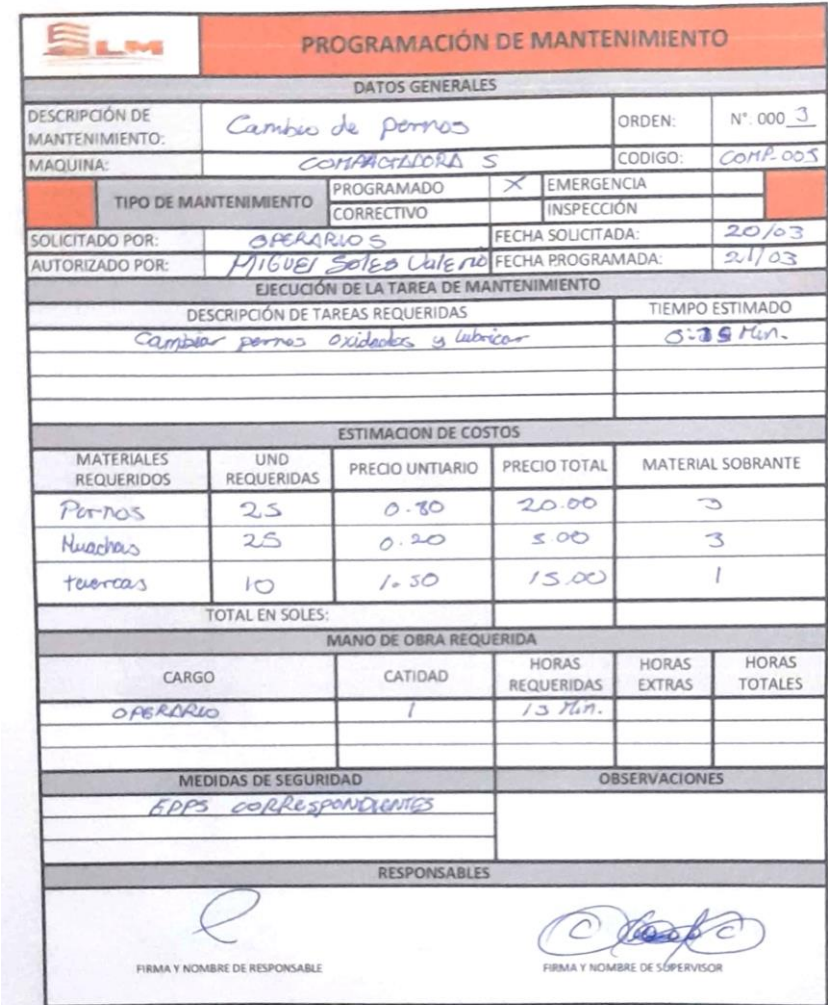 ELM
PROGRAMACIÓN DE MANTENIMIENTO
DATOS GENERALES
DESCRIPCIÓN DE MANTENIMIENTO: Cambio de pernos ORDEN: N°. 000 3
MAQUINA: COMPACTADORA 5 CODIGO: COMP-005
TIPO DE MANTENIMIENTO PROGRAMADO X EMERGENCIA
CORRECTIVO INSPECCIÓN
SOLICITADO POR: OPERARIOS FECHA SOLICITADA: 20/03
AUTORIZADO POR: MIGUEL Valerio FECHA PROGRAMADA: 21/03
EJECUCIÓN DE LA TAREA DE MANTENIMIENTO
DESCRIPCIÓN DE TAREAS REQUERIDAS TIEMPO ESTIMADO
Cambiar pernos oxidados y lubricar Min.
ESTIMACION DE COSTOS
MATERIALES REQUERIDOS UND REQUERIDAS PRECIO UNTIARIO PRECIO TOTAL MATERIAL SOBRANTE
Pernos 25 0.80 20.00 3
Huachas 25 0.20 5.00 3
tuercas 10 1.50 15.00 1
TOTAL EN SOLES:
MANO DE OBRA REQUERIDA
CARGO CATIDAD HORAS REQUERIDAS HORAS EXTRAS HORAS TOTALES
OPERARIO 1 Min.
MEDIDAS DE SEGURIDAD OBSERVACIONES
EPPS CORRESPONDIENTES
RESPONSABLES
FIRMA Y NOMBRE DE RESPONSABLE FIRMA Y NOMBRE DE SUPERVISOR